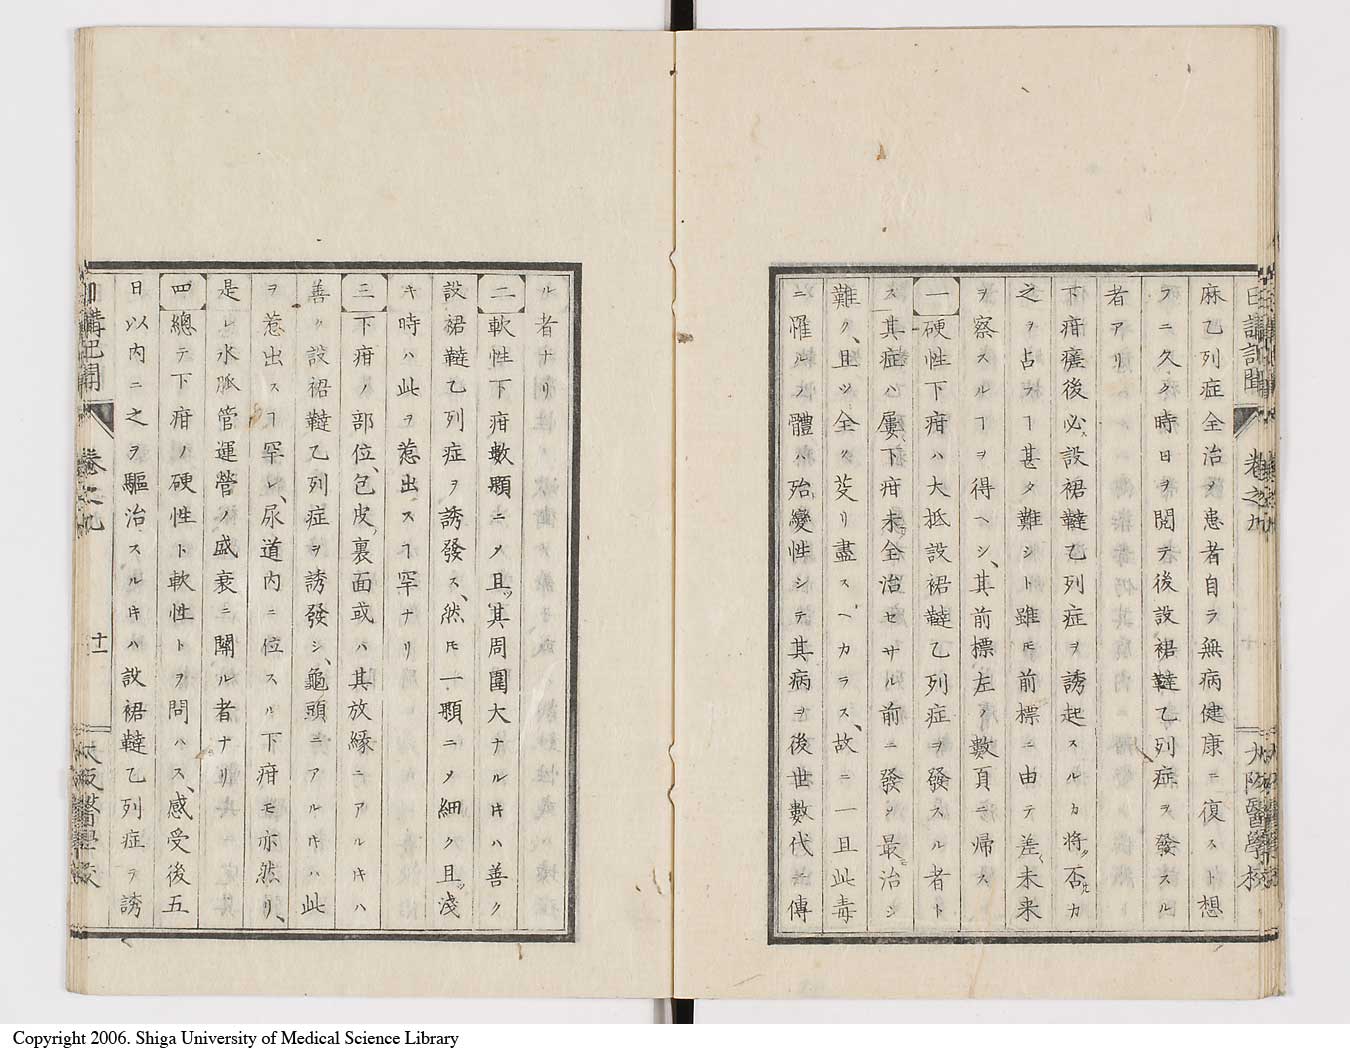 日講記聞 卷之九 大阪醫學校
麻乙列症全治ノ患者自ラ無病健康ニ復スト想
フニ久ク時日ヲ閲テ後設裙韃乙列症ヲ發スル
者アリ
下疳瘥後必ス設裙韃乙列症ヲ誘起スルカ將ッ否ルカ
之ヲ占フヿ甚タ難シト雖モ前標ニ由テ差く未来
ヲ察スルヿヲ得ヘシ、其前標左ノ數頁ニ帰ス
一 硬性下疳ハ大抵設裙韃乙列症ヲ發スル者ト
ス其症ハ屢〻下疳未タ全治セサル前ニ發シ最モ治シ
難ク、且ツ全ク芟リ盡スヘカラス、故ニ一旦此毒
ニ罹ルノ體ハ殆ト變性シテ其病ヲ後世數代ニ傳
ル者ナリ
二 軟性下疳數顆ニ〆且ッ其周圍大ナルキハ善ク
設裙韃乙列症ヲ誘發ス、然モ一顆ニ〆細ク且ッ淺
キ時ハ此ヲ惹出スヿ罕ナリ
三 下疳ノ部位、包皮ノ裏面或ハ其放縁ニアルキハ
善ク設裙韃乙列症ヲ誘發シ、龜頭ニアルキハ此
ヲ惹出スヿ罕レ、尿道内ニ位スル下疳モ亦然リ、
是レ水脈管運營ノ盛衰ニ關ル者ナリ
四 總テ下疳ノ硬性ト軟性トヲ問ハス、感受後五
日以内ニ之ヲ驅治スルキハ設裙韃乙列症ヲ誘
日講記聞 卷之九 十一 大阪醫學校
Copyright 2006. Shiga University of Medical Science Library